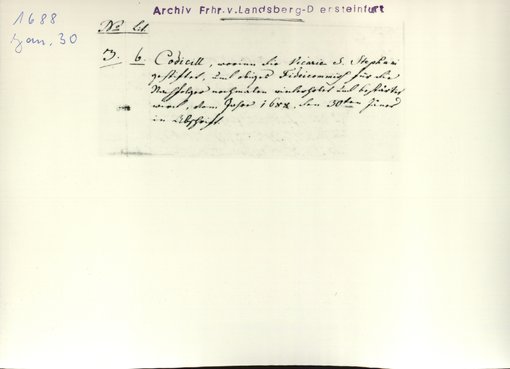 1688
Jan. 30
Archiv Frhr.v.Landsberg-D ersteinfurt
No 21
J. 6. Codicill, worinn die Vicarie S. Stephani
gestiftet, und obiges Fideicommiß für die
Nachfolger nochmalen wiederholet und bestätiget
wird, dem Jahre 1688 den 30ten
in Abschrift.